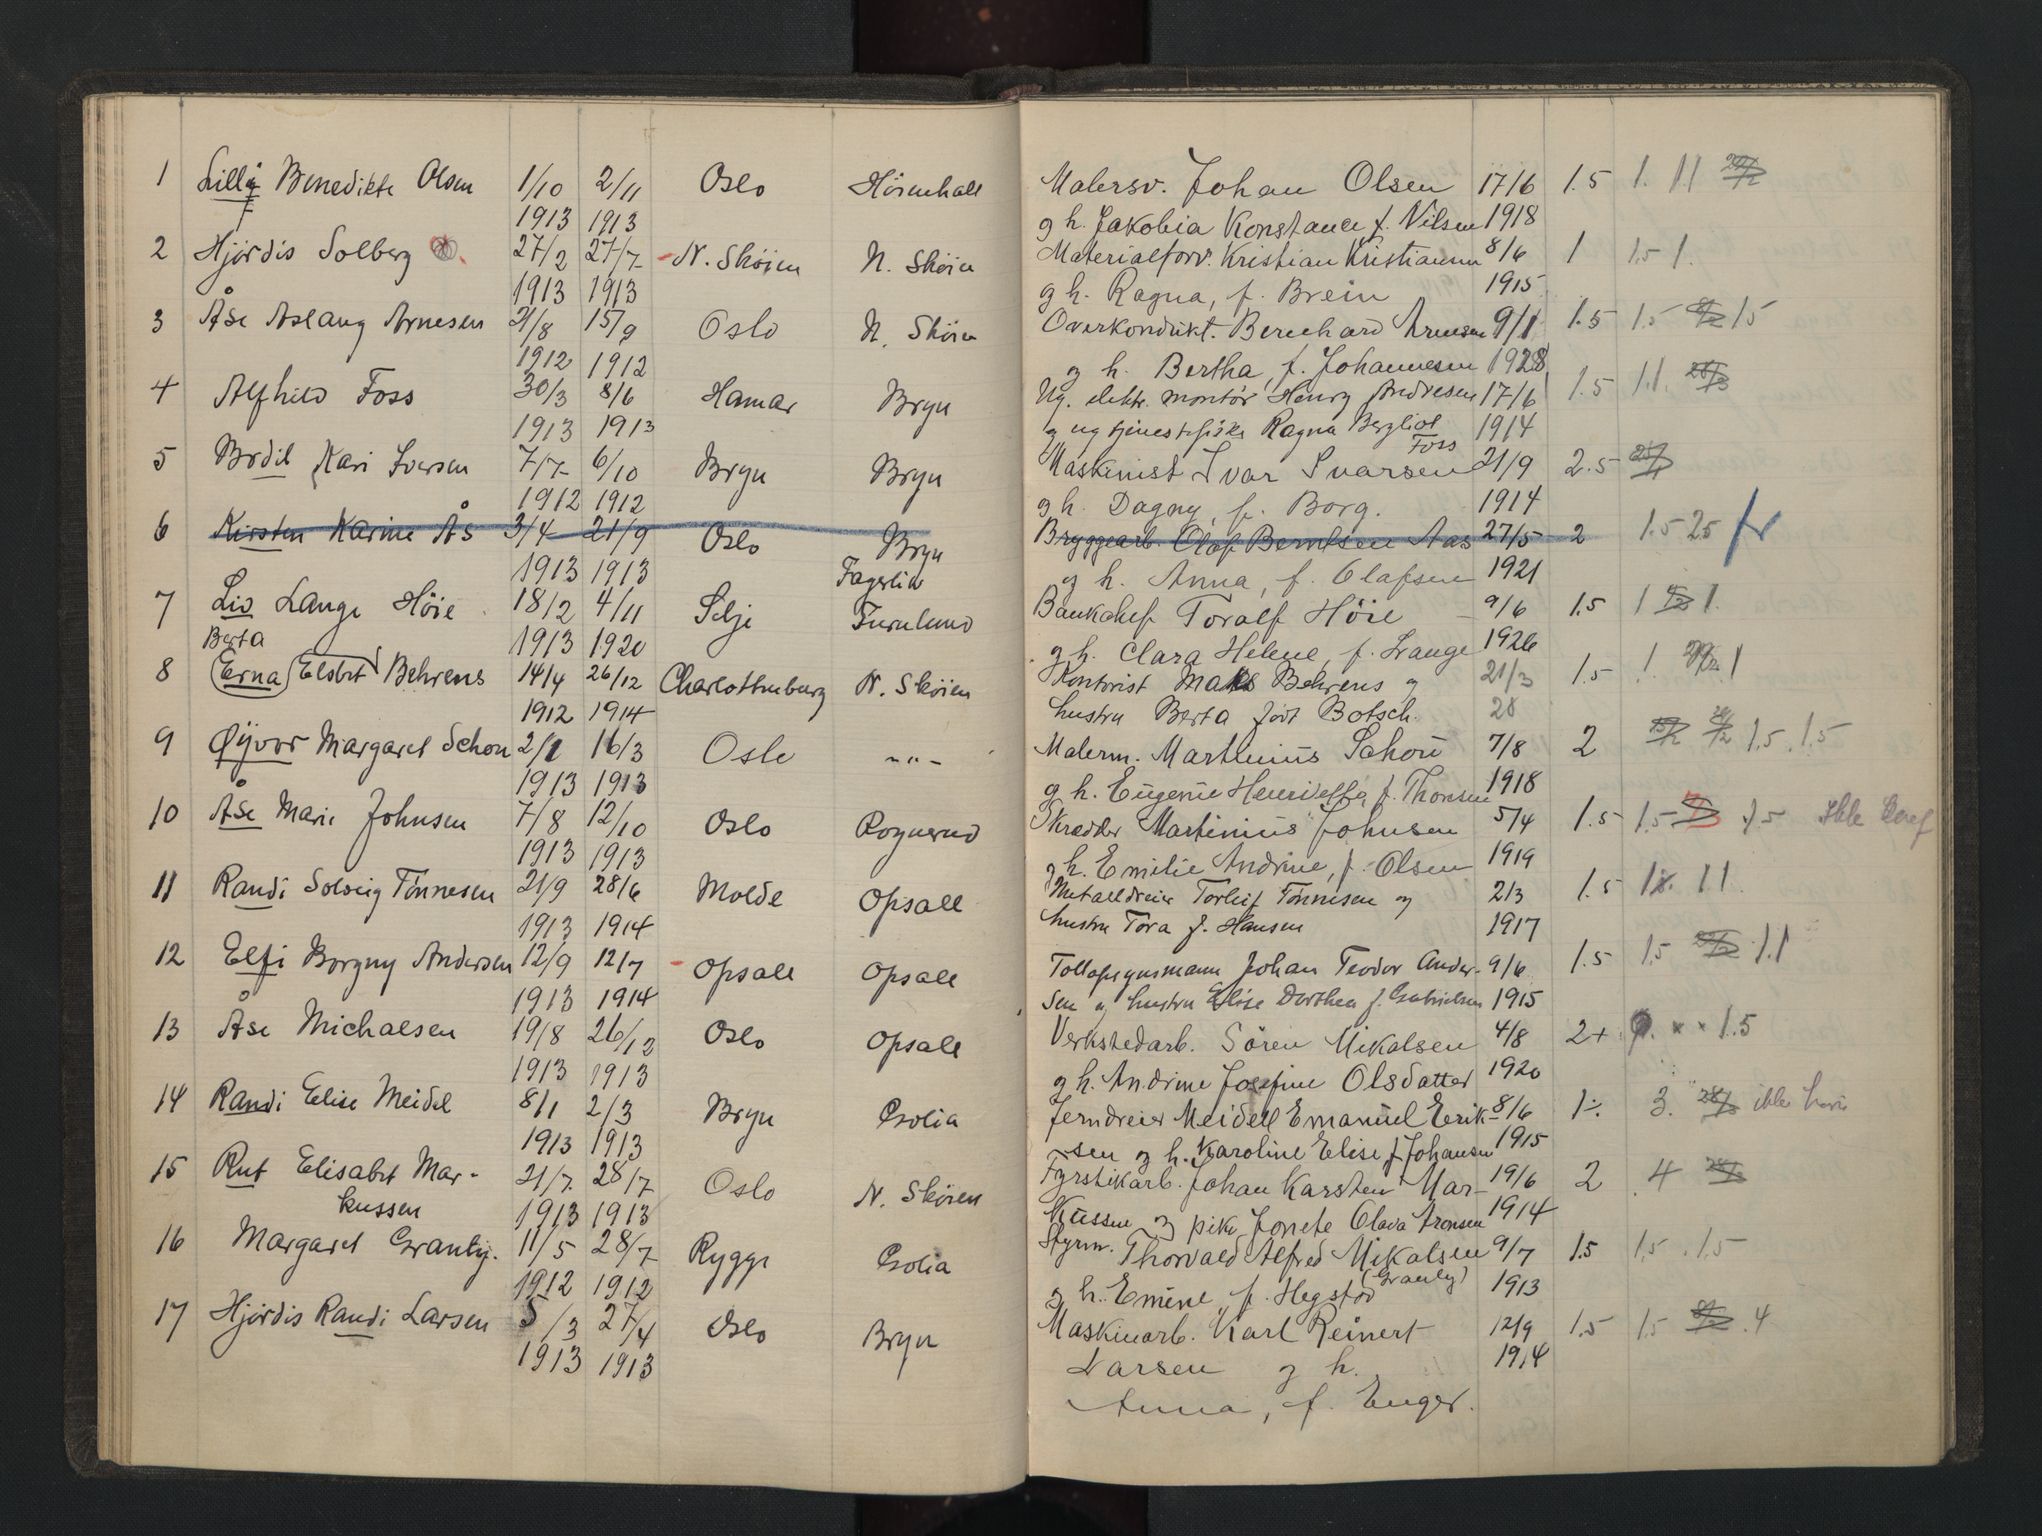 1 Lilly Benedikte Olsen 1/10 2/11 Oslo Høienhall Malersv. Johan Olsen 17/6 1.5 1. 1.1
1913 1913 g h. Jakobia Konstance f. Nilsen 1918
2 Hjørdis Solberg 27/2 27/7 N. Skøien N. Skøien Materialforv. Kristian Kristiansen 8/6 1 1.5 1.
1913 1913 g h. Ragna, f. Brein 1915
3 Åse Aslaug Arnesen 21/8 15/9 Oslo N. Skøien Overkondukt. Bernhard Arnesen 9/1 1.5 1.5 1.5
1912 1912 g h. Bertha, f. Johannesen 1928
4 Alfhild Foss 30/3 8/6 Hamar Bryn Ug. elektr. montør Henry Andresen 17/6 1.5 1.1.
1913 1913 g ug tjenestepike Ragna Bergliot Foss 1914
5 Bodil Kari Iversen 7/7 6/10 Bryn Bryn Maskinist Ivar Ivarsen 21/9 2.5
1912 1912 g h. Dagny, f. Borg. 1914
6 Kirsten Karine Ås 3/4 21/9 Oslo Bryn Bryggearb. Olaf Berntsen Aas 27/5 2 1.5 2.5 fr
1913 1913 Fagerlid g h. Anna, f. Olafsen 1921
7 Liv Lange Høie 18/2 4/11 Selje Furulund Banksjef Toralf Høie 9/6 1.5 1 1.
Berta 1913 1920 g h. Clara Helene, f. Lange 1926
8 (Erna) Elsbet Behrens 14/4 26/12 Charlottenburg N. Skøien Kontorist Maks Behrens g 21/3 1.5 1. 1
1912 1914 hustru Berta født Botsch. 28
9 Øyvor Margaret Schou 2/1 16/3 Oslo -"- Malerm. Marthinius Schou 7/8 2 1.5. 1.5
1913 1913 g h. Eugenie Henriette, f. Thonsen 1918
10 Åse Marie Johnsen 7/8 12/10 Oslo Rognerud Skredder Martinius Johnsen 5/4 1.5 1.5 1.5 Ikke
1913 1913 g h. Emilie Andrine, f. Olsen 1919
11 Randi Solveig Tønnesen 21/9 28/6 Molde Opsall Metalldreier Torleif Tønnesen og 2/3 1.5 1.1
1913 1914 hustru Tora f. Hansen 1917
12 Elfi Borgny Andersen 12/9 12/7 Opsall Opsall Tollopsynsmann Johan Teodor Ander- 9/6 1.5 1.5 1.1
1913 1914 sen og hustru Elise Dorthea f. Gabrielsen 1915
13 Åse Michaelsen 19/8 26/12 Oslo Opsall Verkstedarb. Søren Mikalsen 4/8 2+ x x 1.5
1913 1913 g h. Andrine Josefine Olsdatter 1920
14 Randi Elise Meidel 8/1 2/3 Bryn Solia Jerndreier Meidell Emanuel Erik- 8/6 1÷ 3. ikke
1913 1913 sen og h. Karoline Elise f. Johansen 1915
15 Rut Elisabet Mar- 21/7 28/7 Oslo N. Skøien Fyrstikarb. Johan Karsten Mar- 19/6 2 4
kussen 1913 1913 kussen og pike Jonete Olava Aronsen 1914
16 Margaret Granly. 11/5 28/7 Rygge Solia Styrm. Thorvald Alfred Mikalsen 9/7 1.5 1.5 1.5
1912 1912 g h. Emine, f. Hegstad (Granly) 1913
17 Hjørdis Randi Larsen 5/3 27/4 Oslo Bryn Maskinarb. Karl Reinert 12/9 1.5 1.5 .4
1913 1913 Larsen g h. 1914
Anna, f. Enger.